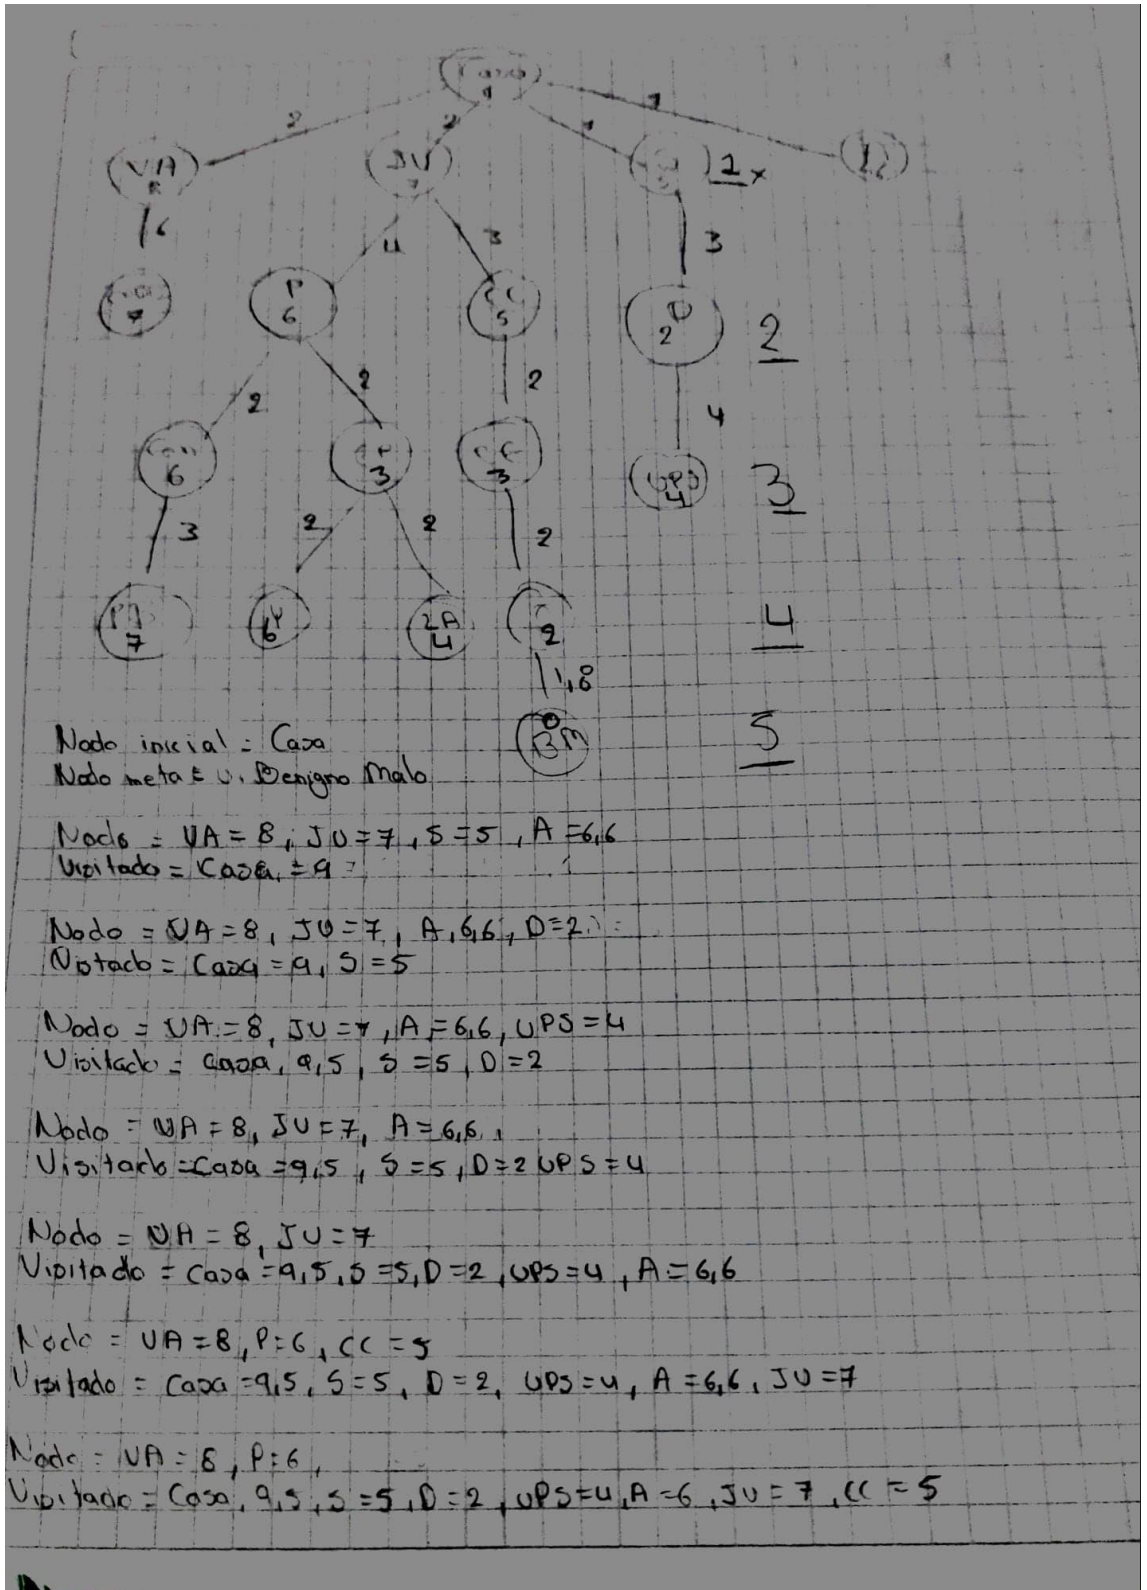 Casa
9
2 2 1 1
VA
8
JU
7
1 x
6 4 3 3
7
P
6
CC
5
D
2
2
2 2 2 4
6
3
3
UPS
4
3
3 2 2 2
7
6
ZA
4
2
4
1,8
0
BM
5
Nodo inicial = Casa
Nodo meta = U. Benigno Malo
Nodo = VA = 8, JU = 7, S = 5, A = 6,6
Visitado = Casa, = 9
Nodo = VA = 8, JU = 7, A, 6,6, D = 2
Vistado = Casa = 9, S = 5
Nodo = VA = 8, JU = 7, A = 6,6, UPS = 4
Visitado = casa, 9,5, S = 5, D = 2
Nodo = VA = 8, JU = 7, A = 6,6,
Visitado = Casa = 9,5, S = 5, D = 2 UPS = 4
Nodo = VA = 8, JU = 7
Visitado = Casa = 9,5, S = 5, D = 2, UPS = 4, A = 6,6
Nodo = VA = 8, P = 6, CC = 5
Visitado = Casa = 9,5, S = 5, D = 2, UPS = 4, A = 6,6, JU = 7
Nodo = VA = 8, P = 6,
Visitado = Casa, 9,5, S = 5, D = 2, UPS = 4, A = 6, JU = 7, CC = 5